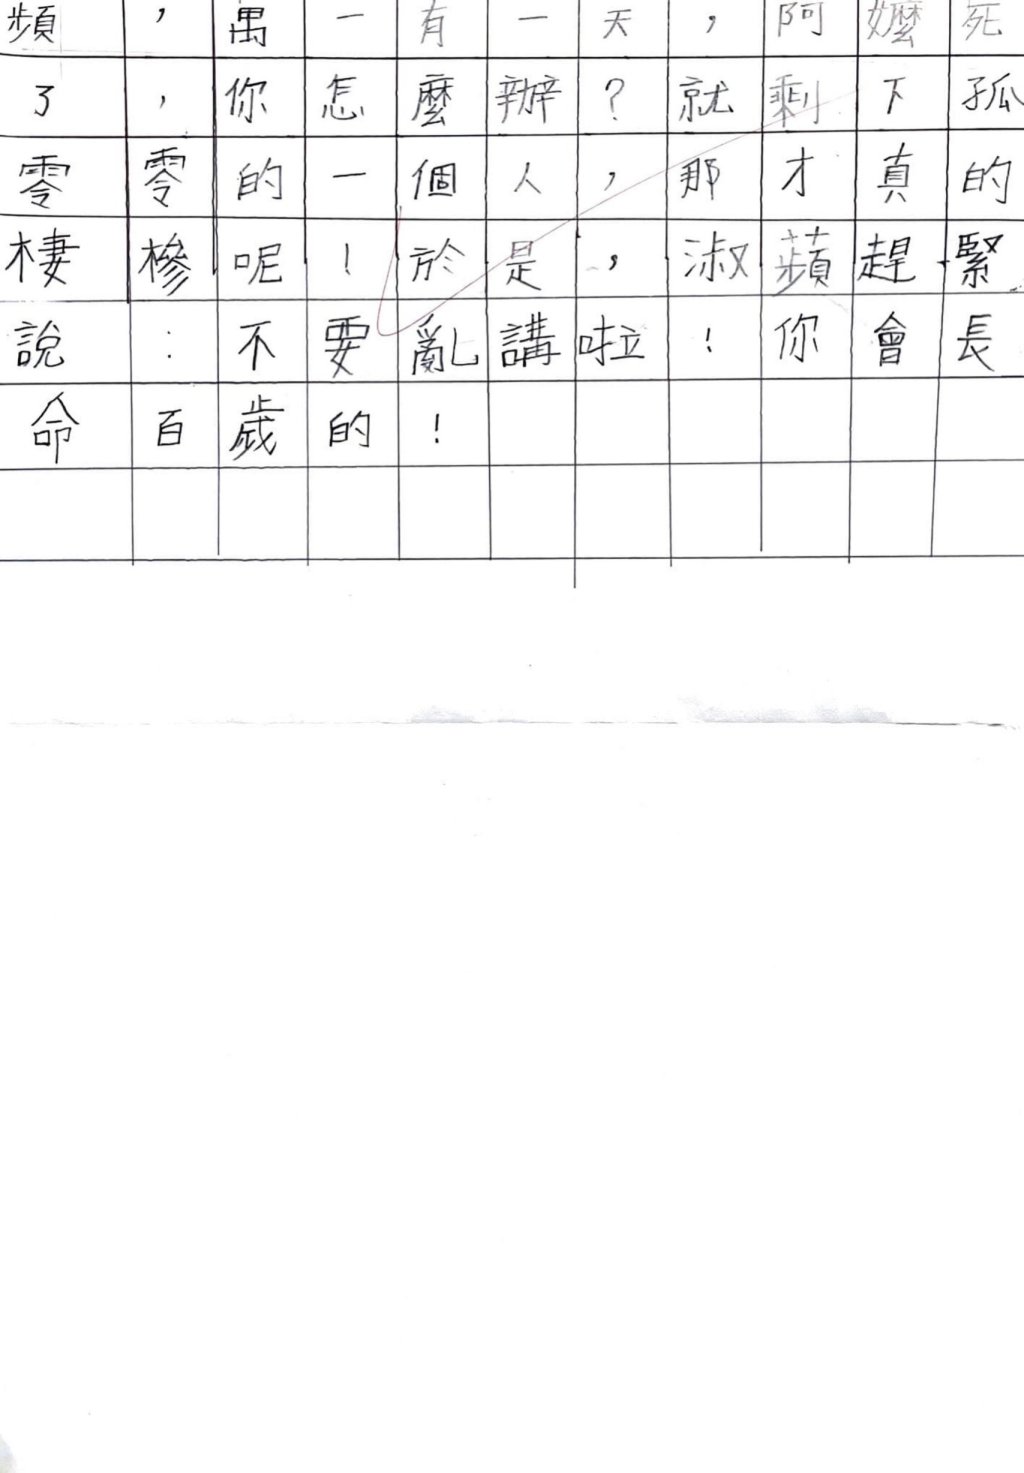 頻，萬一有一天，阿嬤死
了，你怎麼辦？就剩下孤
零零的一個人，那才真的
棲槮呢！於是，淑蘋趕緊
說：不要亂講啦！你會長
命百歲的！